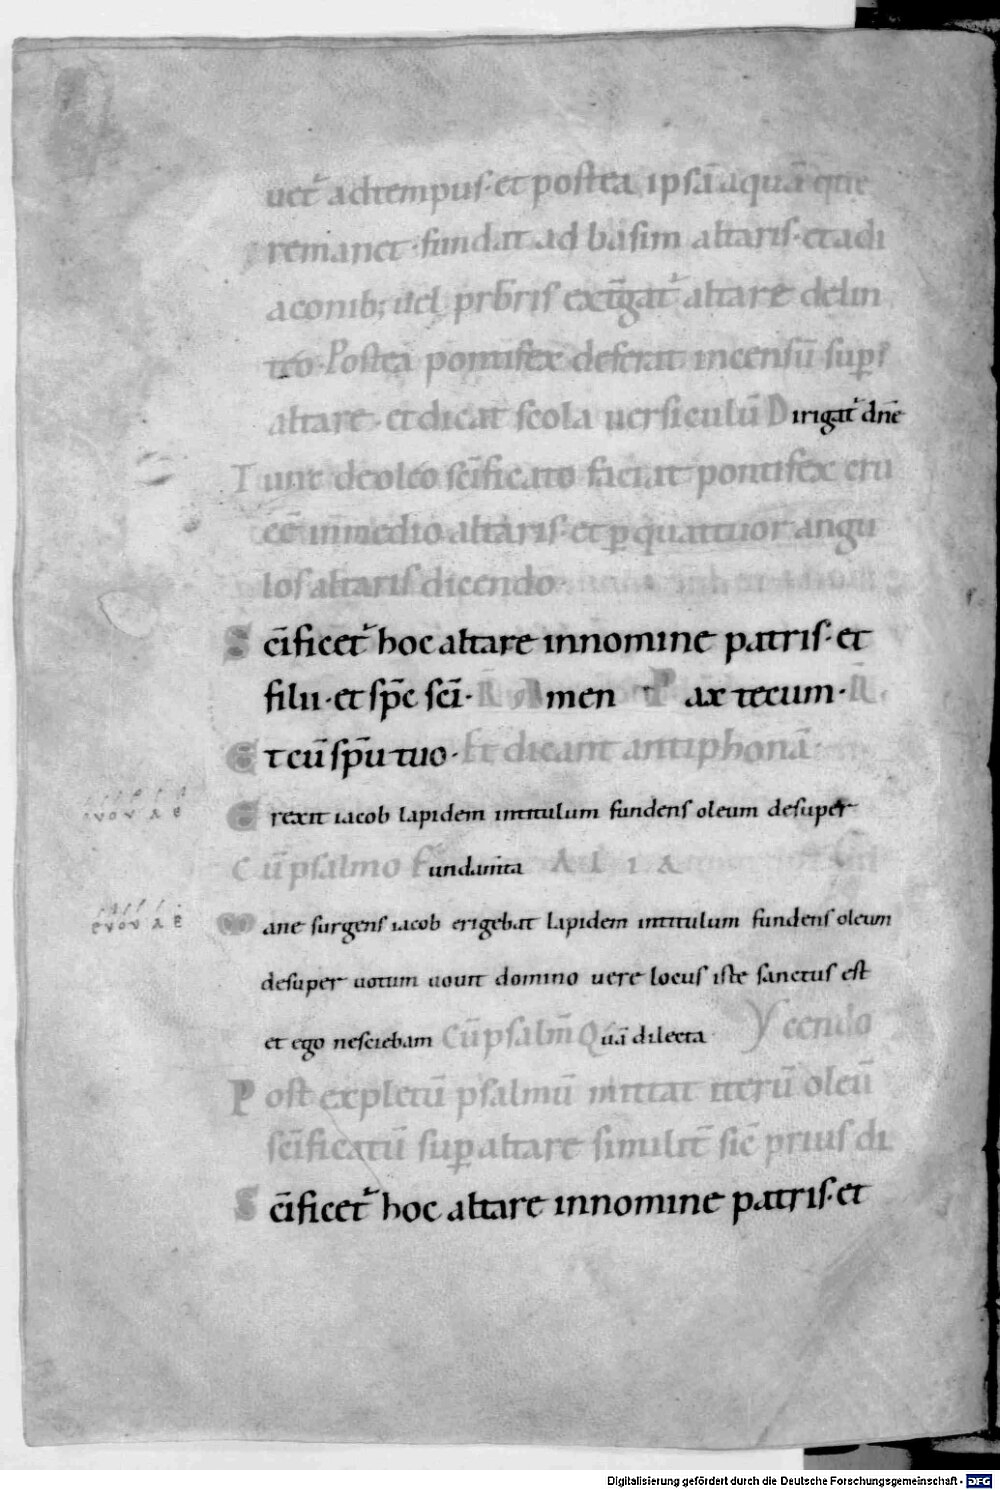 uet᷑ ad tempus· et postea ipsā aquā que
remanet· fundat ad basim altaris· et a di
aconib; uel prb̄ris ext̄gat᷑ altare delin
teo· Postea pontifex deferat incensū sup̱
altare· et dicat scola uersiculū Dirigat᷑ dn̄e
Tunc de oleo sc̄ificato faciat pontifex cru
cē in medio altaris· et p̱ quattuor angu
los altaris dicendo·
Sc̄ificet᷑ hoc altare in nomine patris· et
filii· et sp̄c sc̄i· R̄ Amen Pax tecum· R̄
Et cū sp̄u tuo· Et dicant antiphonā·
evovae Erexit iacob lapidem in titulum fundens oleum desuper
Cū psalmo Fundam̄ta ALIA
evovae Mane surgens iacob erigebat lapidem in titulum fundens oleum
desuper uotum uouit domino uere locus iste sanctus est
et ego nesciebam Cū psalm̄ Quā dilecta
Post expletū psalmū mittat iterū oleū
sc̄ificatū sup̱ altare similit̄ sic̄ prius di
Sc̄ificet᷑ hoc altare in nomine patris· et
Digitalisierung gefördert durch die Deutsche Forschungsgemeinschaft - DFG